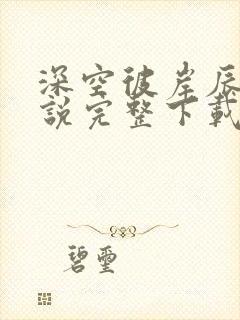 深空彼岸辰
說完整下載
碧璽